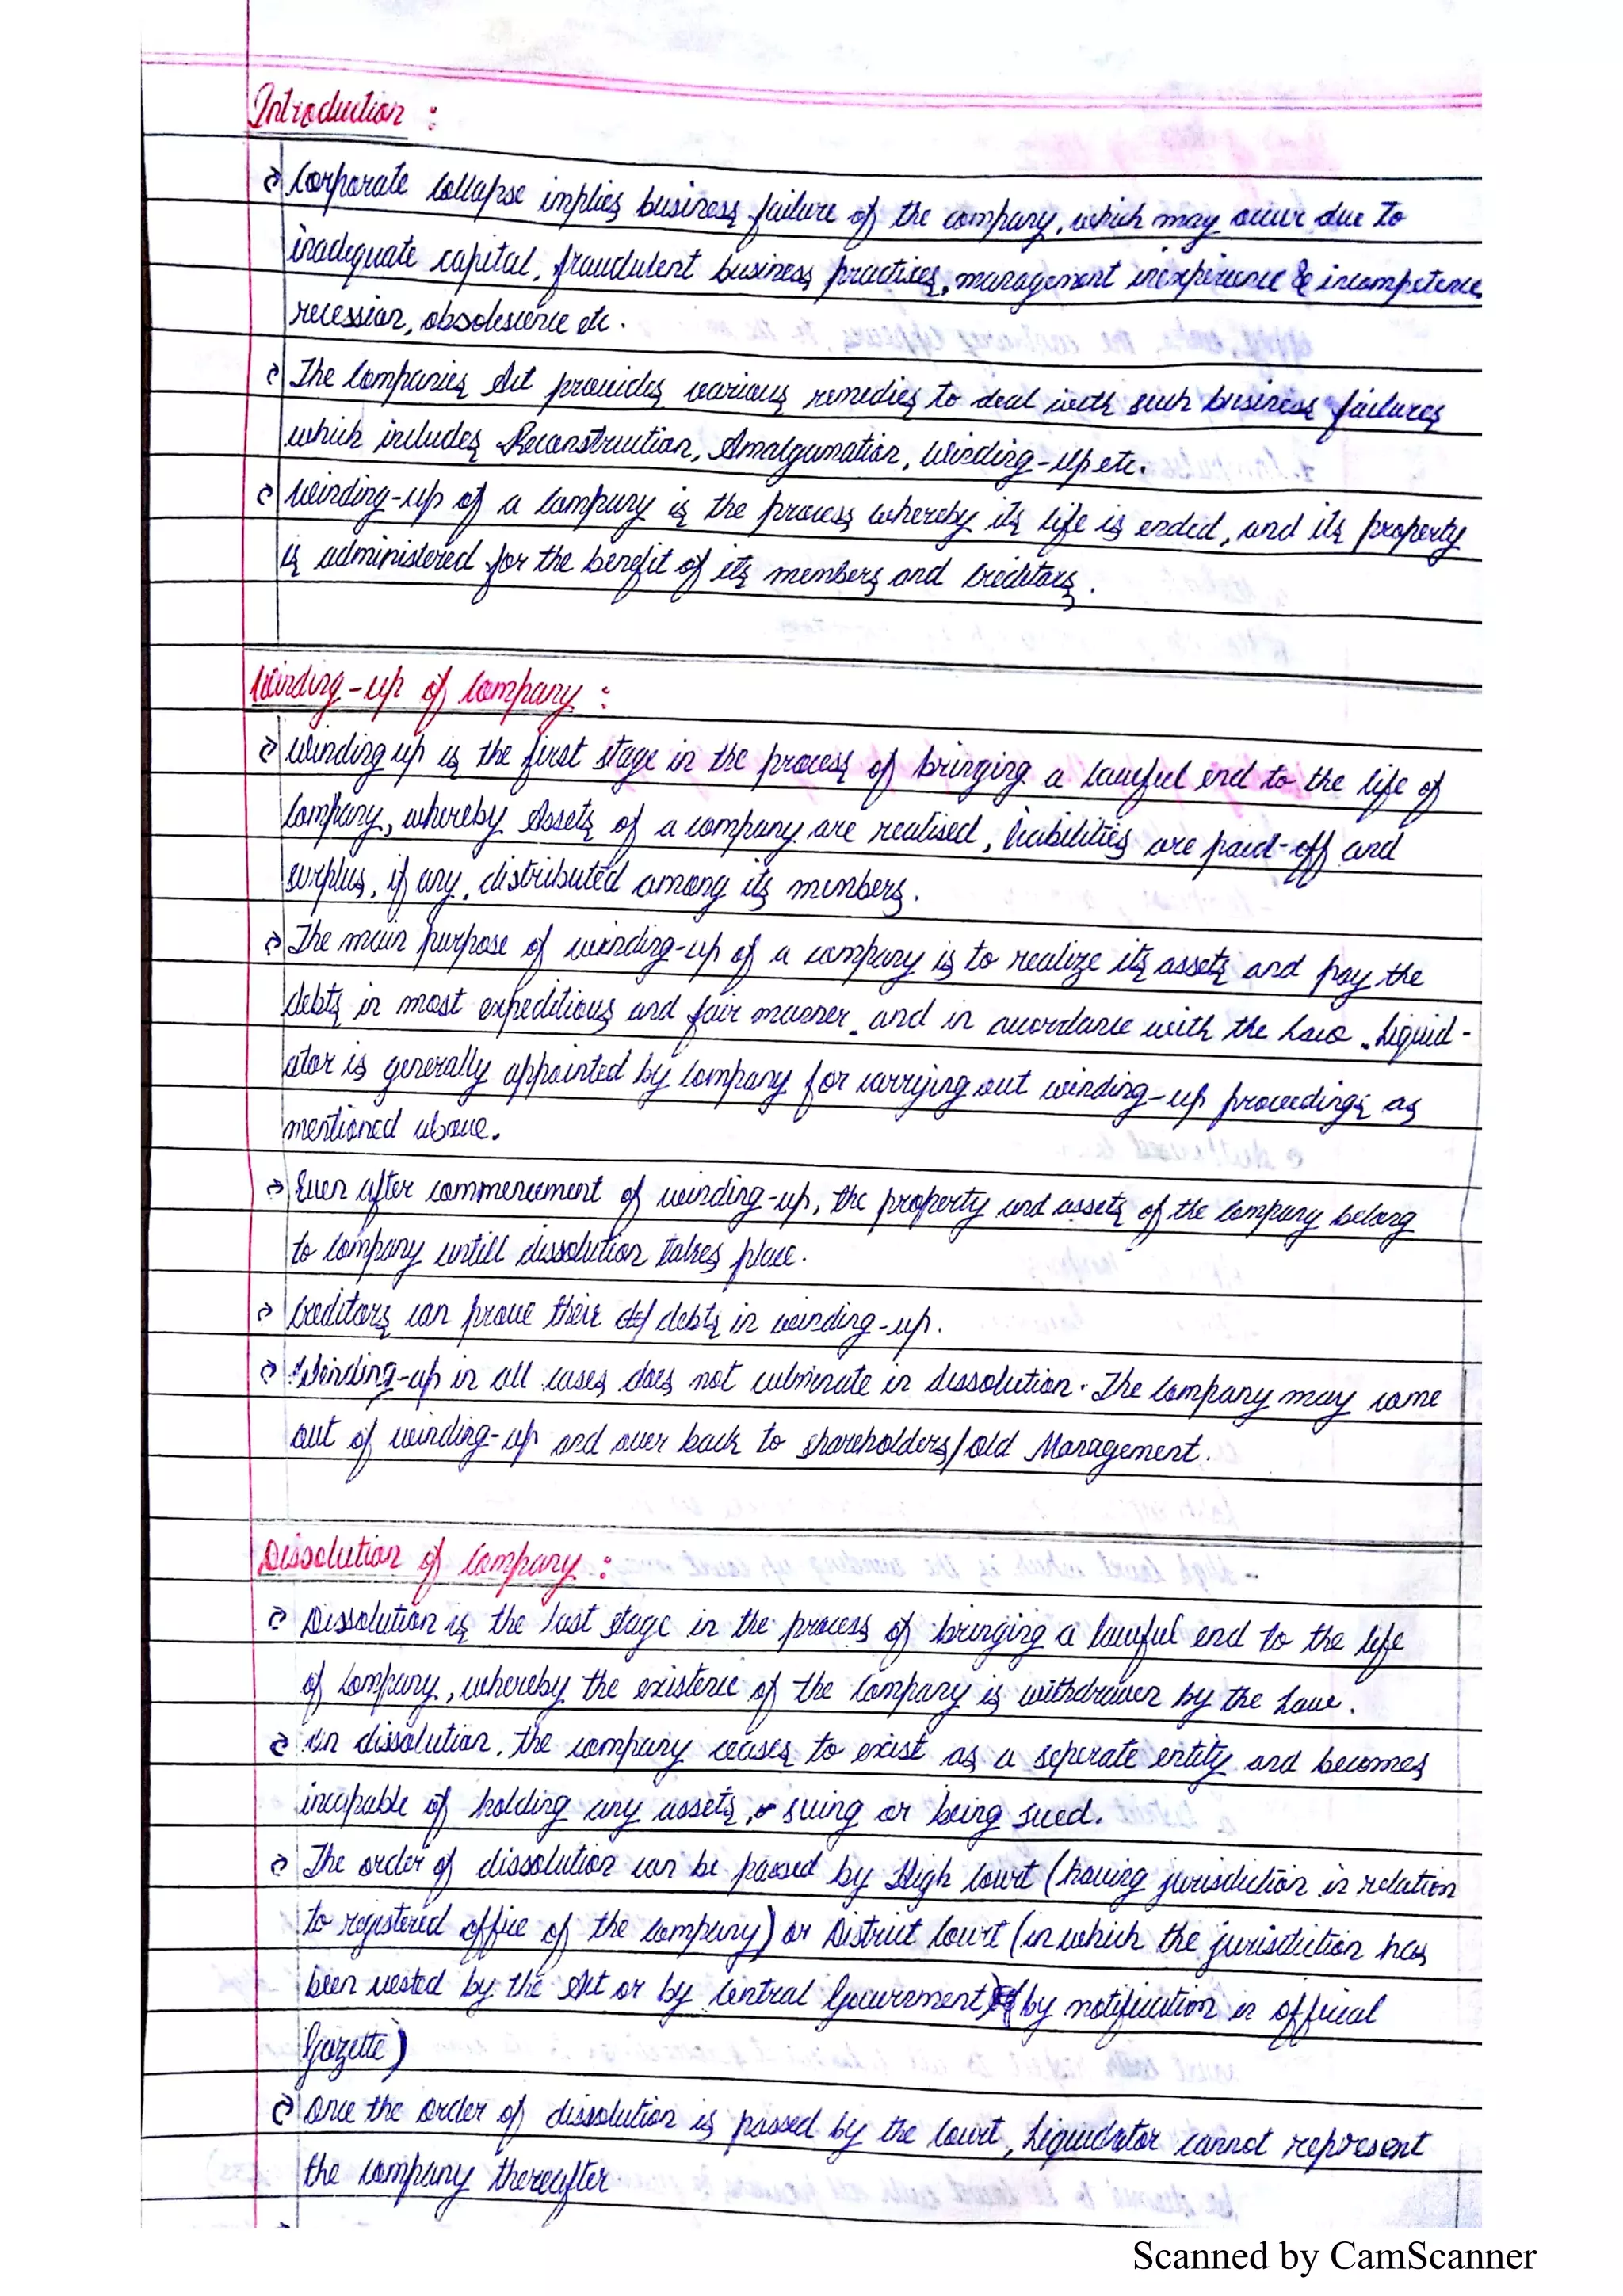 Introduction :
Corporate Collapse implies business failure of the company, which may occur due to
inadequate capital, fraudulent business practices, management inexperience & incompetence
recession, obsolescence etc.
The Companies Act provides various remedies to deal with such business failures
which includes Reconstruction, Amalgamation, Winding-up etc.
Winding-up of a Company is the process whereby its life is ended, and its property
is administered for the benefit of its members and Creditors.
Winding-up of Company :
Winding up is the first stage in the process of bringing a lawful end to the life of
Company, whereby Assets of a company are realised, Liabilities are paid-off and
surplus, if any, distributed among its members.
The main purpose of winding-up of a company is to realize its assets and pay the
debts in most expeditious and fair manner. and in accordance with the Law. Liquid-
ator is generally appointed by Company for carrying out winding-up proceedings as
mentioned above.
Even after commencement of winding-up, the property and assets of the Company belong
to Company untill dissolution takes place.
Creditors can prove their debts in winding-up.
Winding-up in all cases does not culminate in dissolution. The Company may come
out of winding-up and over back to shareholders/old Management.
Dissolution of Company :
Dissolution is the last stage in the process of bringing a lawful end to the life
of Company, whereby the existence of the Company is withdrawn by the Law.
In dissolution, the company ceases to exist as a seperate entity and becomes
incapable of holding any assets, suing or being sued.
The order of dissolution can be passed by High Court (having jurisdiction in relation
to registered office of the Company) or District Court (in which the jurisdiction has
been vested by the Act or by Central Government) (by notification in official
Gazette)
Once the order of dissolution is passed by the Court, Liquidator cannot represent
the Company thereafter
Scanned by CamScanner